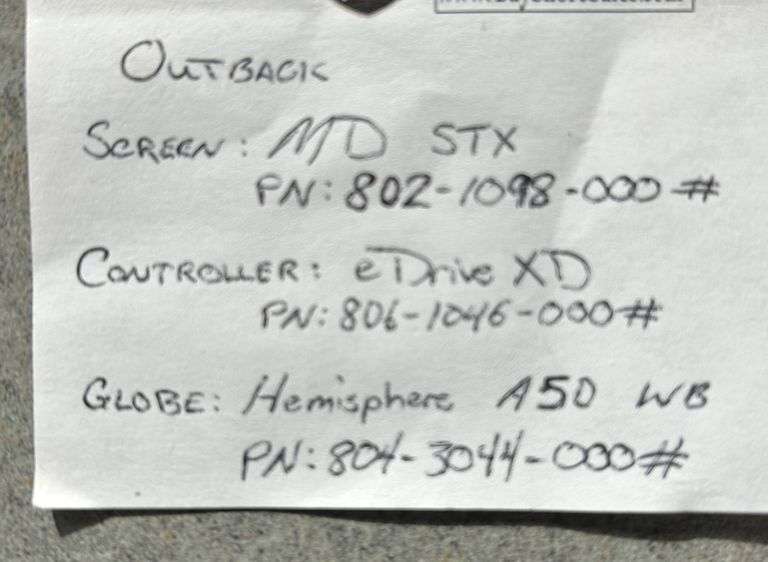 OUTBACK
SCREEN: MD STX
PN: 802-1098-000#
CONTROLLER: eDrive XD
PN: 806-1046-000#
GLOBE: Hemisphere A50 WB
PN: 804-3044-000#